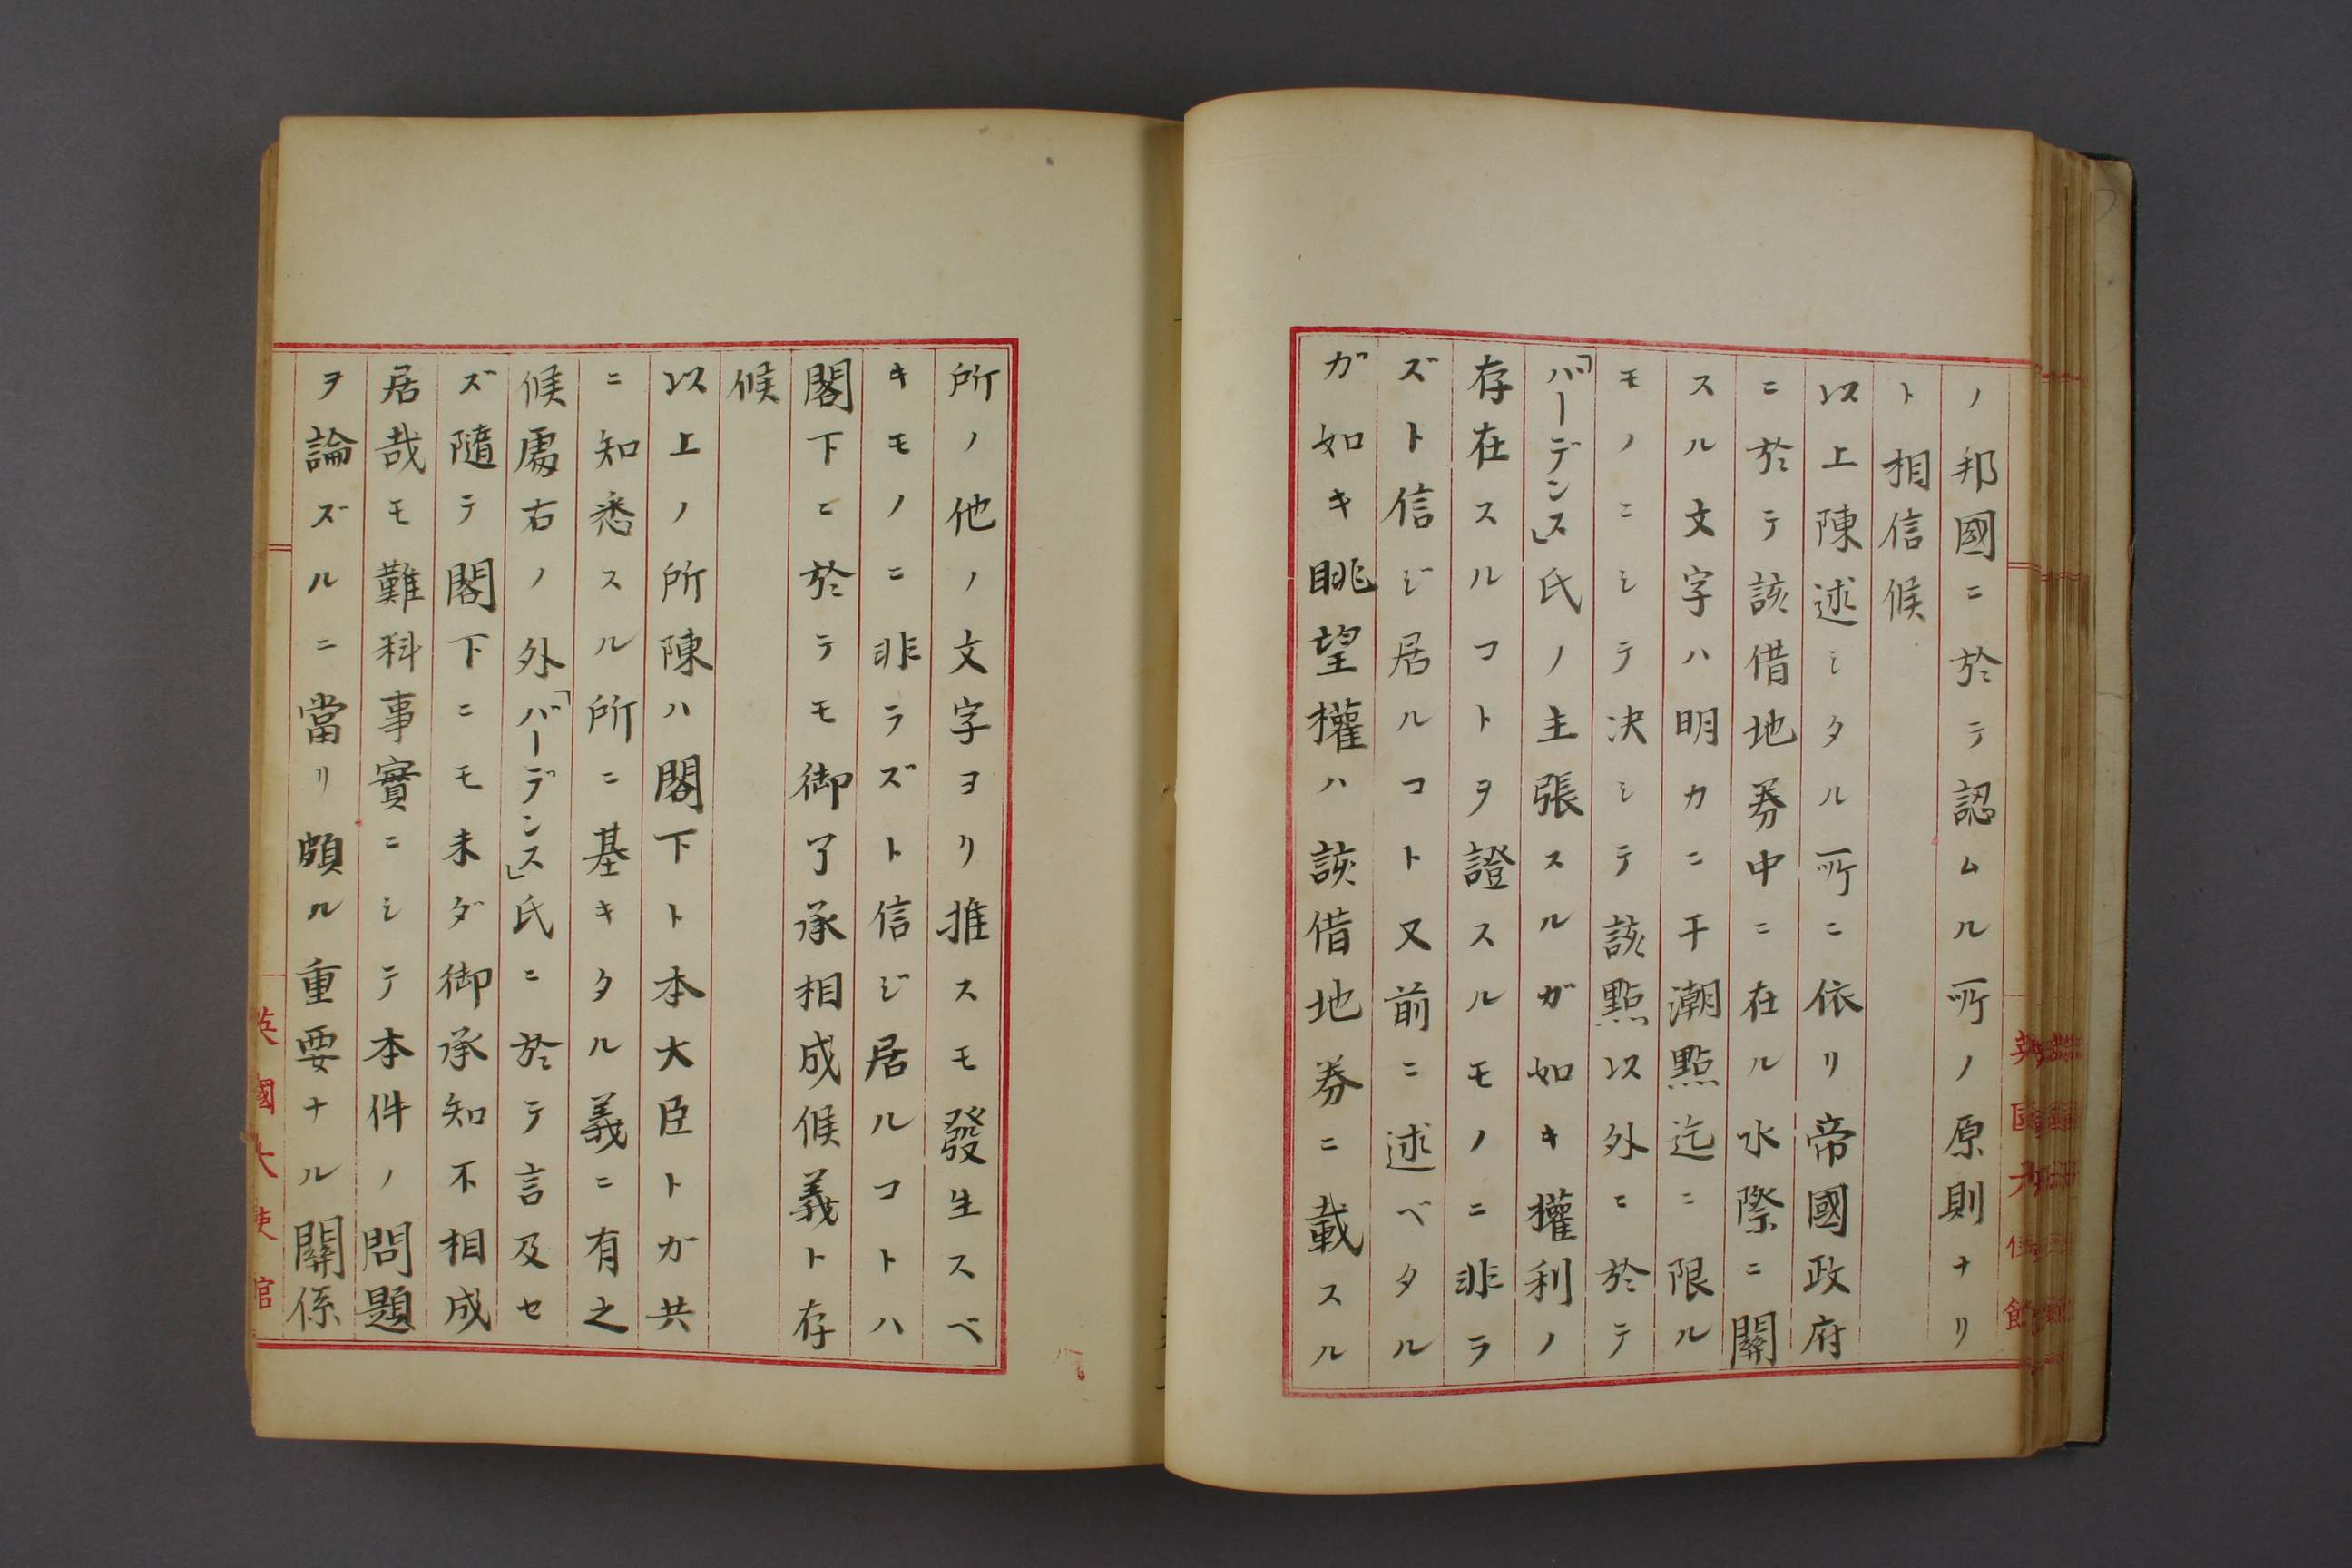 ノ邦國ニ於テ認ムル所ノ原則ナリ
ト相信候
以上陳述シタル所ニ依リ帝國政府
ニ於テ該借地券中ニ在ル水際ニ關
スル文字ハ明カニ干潮點迄ニ限ル
モノニシテ決シテ該點以外ニ於テ
「バーデンス」氏ノ主張スルガ如キ權利ノ
存在スルコトヲ證スルモノニ非ラ
ズト信ジ居ルコト又前ニ述ベタル
ガ如キ眺望權ハ該借地券ニ載スル
所ノ他ノ文字ヨリ推スモ發生スベ
キモノニ非ラズト信ジ居ルコトハ
閣下ニ於テモ御了承相成候義ト存
候
以上ノ所陳ハ閣下ト本大臣トガ共
ニ知悉スル所ニ基キタル義ニ有之
候處右ノ外「バーデンス」氏ニ於テ言及セ
ズ隨テ閣下ニモ未ダ御承知不相成
居哉モ難科事實ニシテ本件ノ問題
ヲ論ズルニ當リ頗ル重要ナル關係
英國大使館